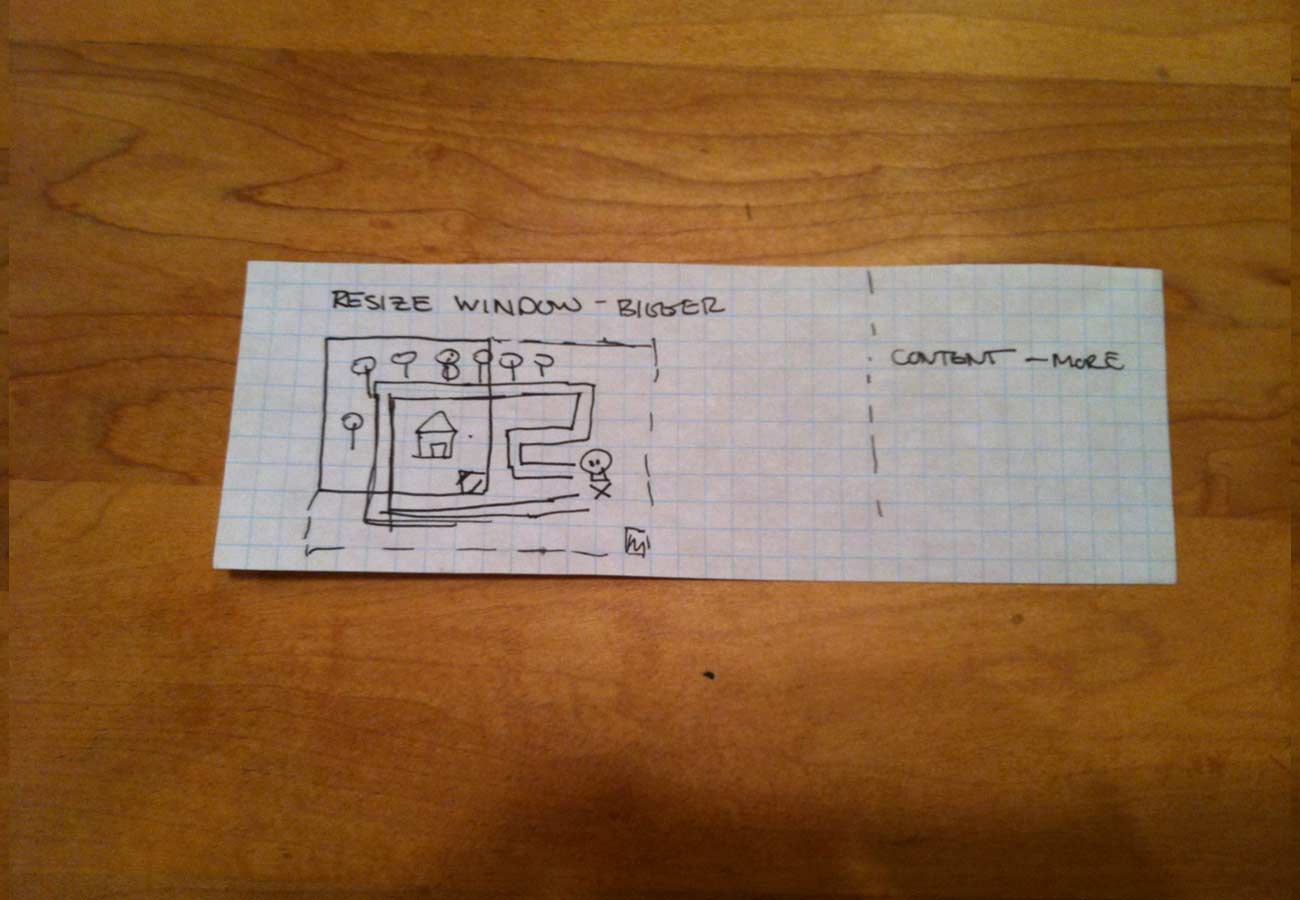 RESIZE WINDOW - BIGGER
CONTENT - MORE